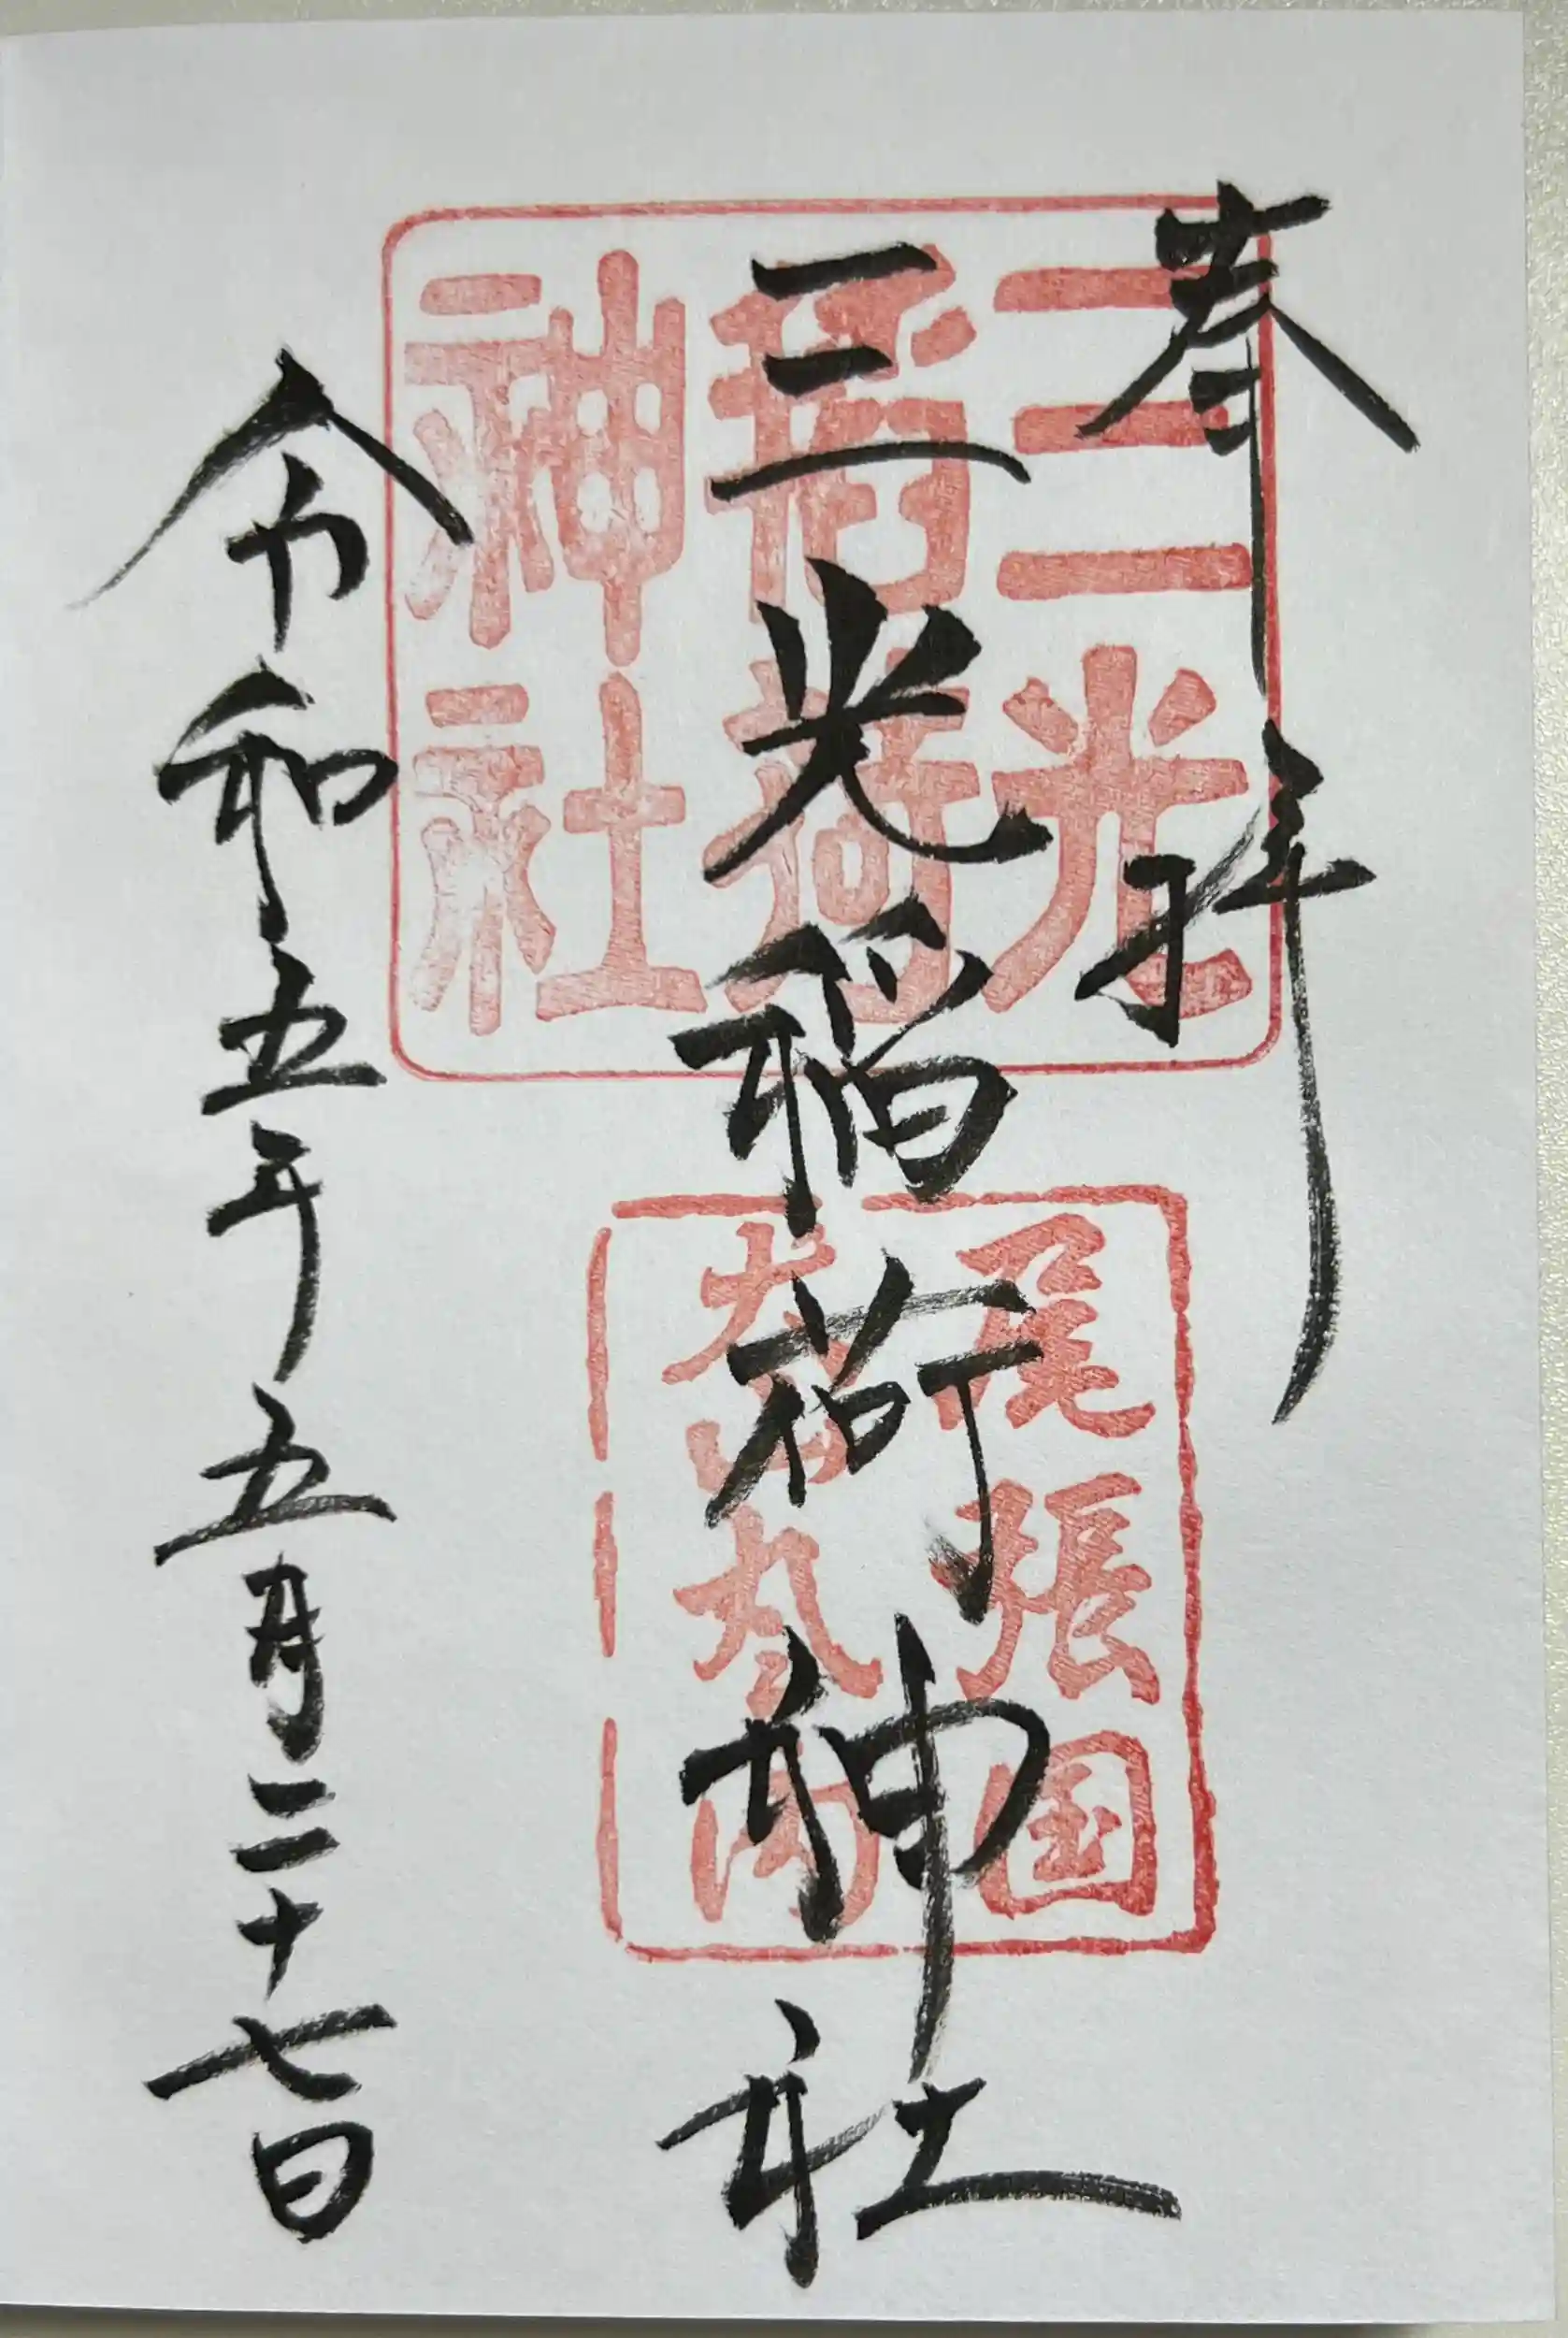 奉拝
三光稲荷神社
令和五年五月二十七日
三光
稲荷
神社
尾張国
犬山丸の内